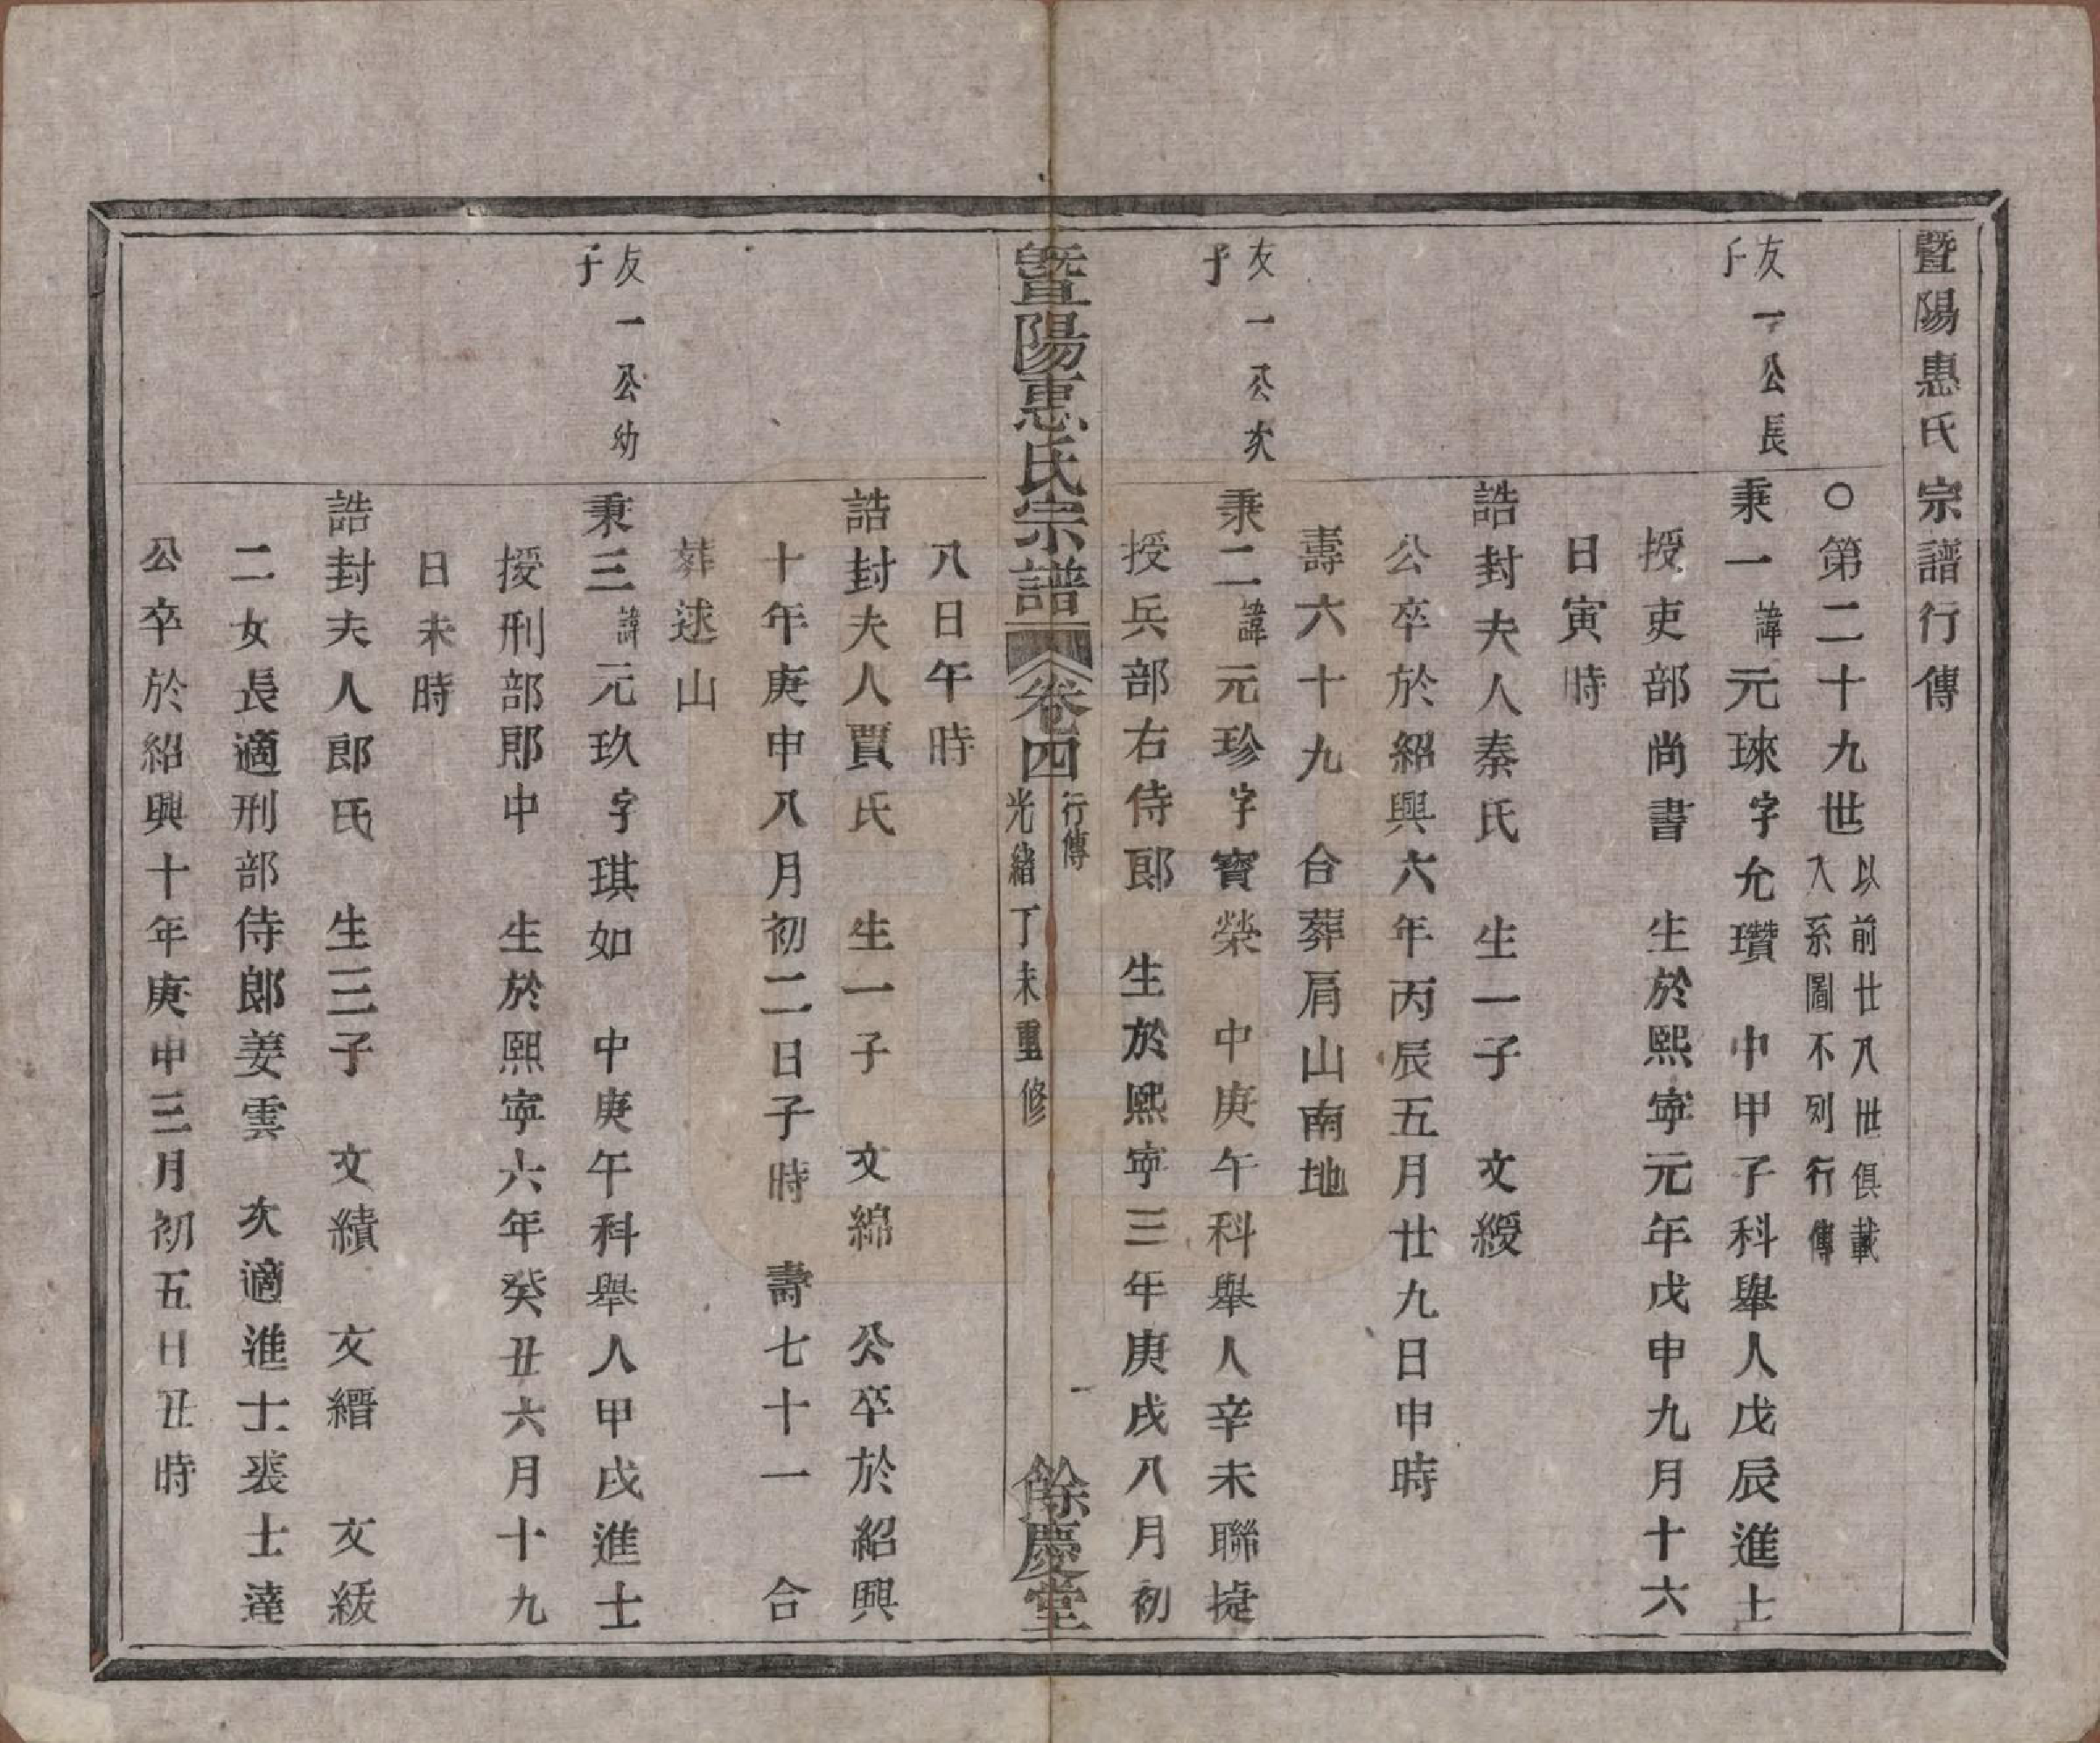 暨陽惠氏宗譜行傳
○第二十九世 以前廿八世俱載
入系圖不列行傳
友一公長
子
秉一諱元琜字允瓚 中甲子科舉人戊辰進士
授吏部尚書 生於熙寧元年戊申九月十六
日寅時
誥封夫人秦氏 生一子 文綬
公卒於紹興六年丙辰五月廿九日申時
壽六十九 合葬肩山南地
友一公次
子
秉二諱元珍字寶榮 中庚午科舉人辛未聯捷
授兵部右侍郎 生於熙寧三年庚戌八月初
暨陽惠氏宗譜 卷四 行傳
光緒丁未重修
一
餘慶堂
八日午時
誥封夫人賈氏 生一子 文綿 公卒於紹興
十年庚申八月初二日子時 壽七十一 合
葬逑山
友一公幼
子
秉三諱元玖字琪如 中庚午科舉人甲戌進士
授刑部郎中 生於熙寧六年癸丑六月十九
日未時
誥封夫人郎氏 生三子 文績 文縉 文綏
二女長適刑部侍郎姜雲 次適進士裘士達
公卒於紹興十年庚申三月初五日丑時